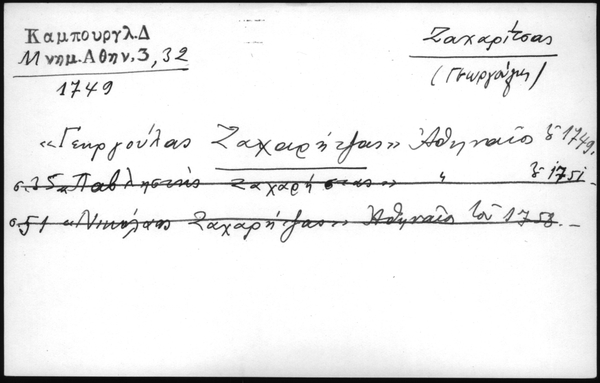 Καμπουργλ.Δ
Μνημ.Αθην.3,32
1749
Ζαχαρίτσας
(Γεωργούλης)
«Γεωργούλας Ζαχαρήτζας» Ἀθηναῖος 1749.
σ.35 «Παβλησττής Ζαχαρήστας» " 1751
σ.51 «Νικόλας Ζαχαρήτζας» Ἀθηναῖος τοῦ